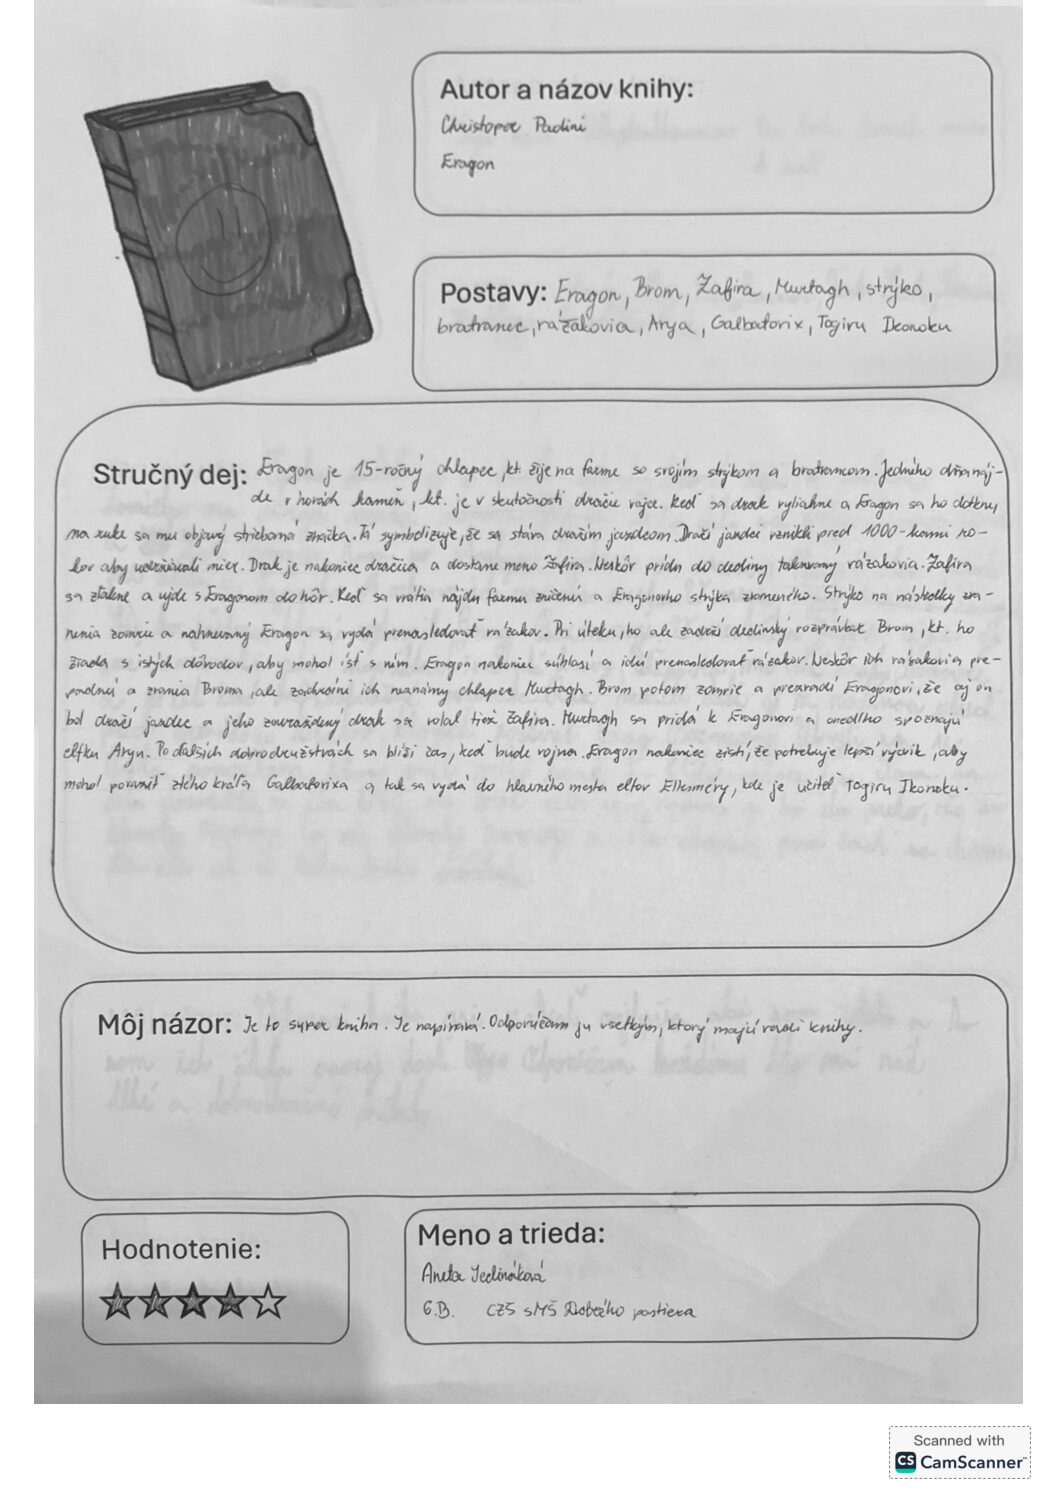 Autor a názov knihy:
Christoper Paolini
Eragon
Postavy: Eragon, Brom, Zafira, Murtagh, strýko,
bratranec, rázakovia, Arya, Galbatorix, Togiru Ikonoku
Stručný dej: Eragon je 15-ročný chlapec, kt. žije na farme so svojím strýkom a bratrancom. Jedného dňa náj-
de v horách kameň, kt. je v skutočnosti dračie vajce. Keď sa drak vyliahne a Eragon sa ho dotkne,
na ruke sa mu objavý strieborná značka. Tá symbolizuje, že sa stáva dračím jazdcom. Dračí jazdci vznikli pred 1000-kami ro-
kov aby udržiavali mier. Drak je nakoniec dračica a dostane meno Zafira. Neskôr prídu do dediny takzvaný rázakovia. Zafira
sa zľakne a ujde s Eragonom do hôr. Keď sa vrátia nájdu farmu zničenú a Eragonovho strýka zraneného. Strýko na následky zra-
nenia zomrie a nahnevaný Eragon sa vydá prenasledovať rázakov. Pri úteku, ho ale zadrží dedinský rozprávkar Brom, kt. ho
žiada s istých dôvodov, aby mohol ísť s ním. Eragon nakoniec súhlasí a idú prenasledovať rázakov. Neskôr ich rázakovia pre-
padnú a zrania Broma, ale zachráni ich neznámy chlapec Murtagh. Brom potom zomrie a prezradí Eragonovi, že aj on
bol dračí jazdec a jeho zavraždený drak sa volal tiež Zafira. Murtagh sa pridá k Eragonovi a onedlho spoznajú
elfku Aryu. Po ďalších dobrodružstvách sa blíži čas, keď bude vojna. Eragon nakoniec zistí, že potrebuje lepší výcvik, aby
mohol poraziť zlého kráľa Galbatorixa a tak sa vydá do hlavného mesta elfov Ellesméry, kde je učiteľ Togiru Ikonoku.
Môj názor: Je to super kniha. Je napínavá. Odporúčam ju všetkým, ktorý majú radi knihy.
Hodnotenie:
Meno a trieda:
Aneta Jedináková
6.B. CZŠ sMŠ Dobrého pastiera
Scanned with
CS CamScanner